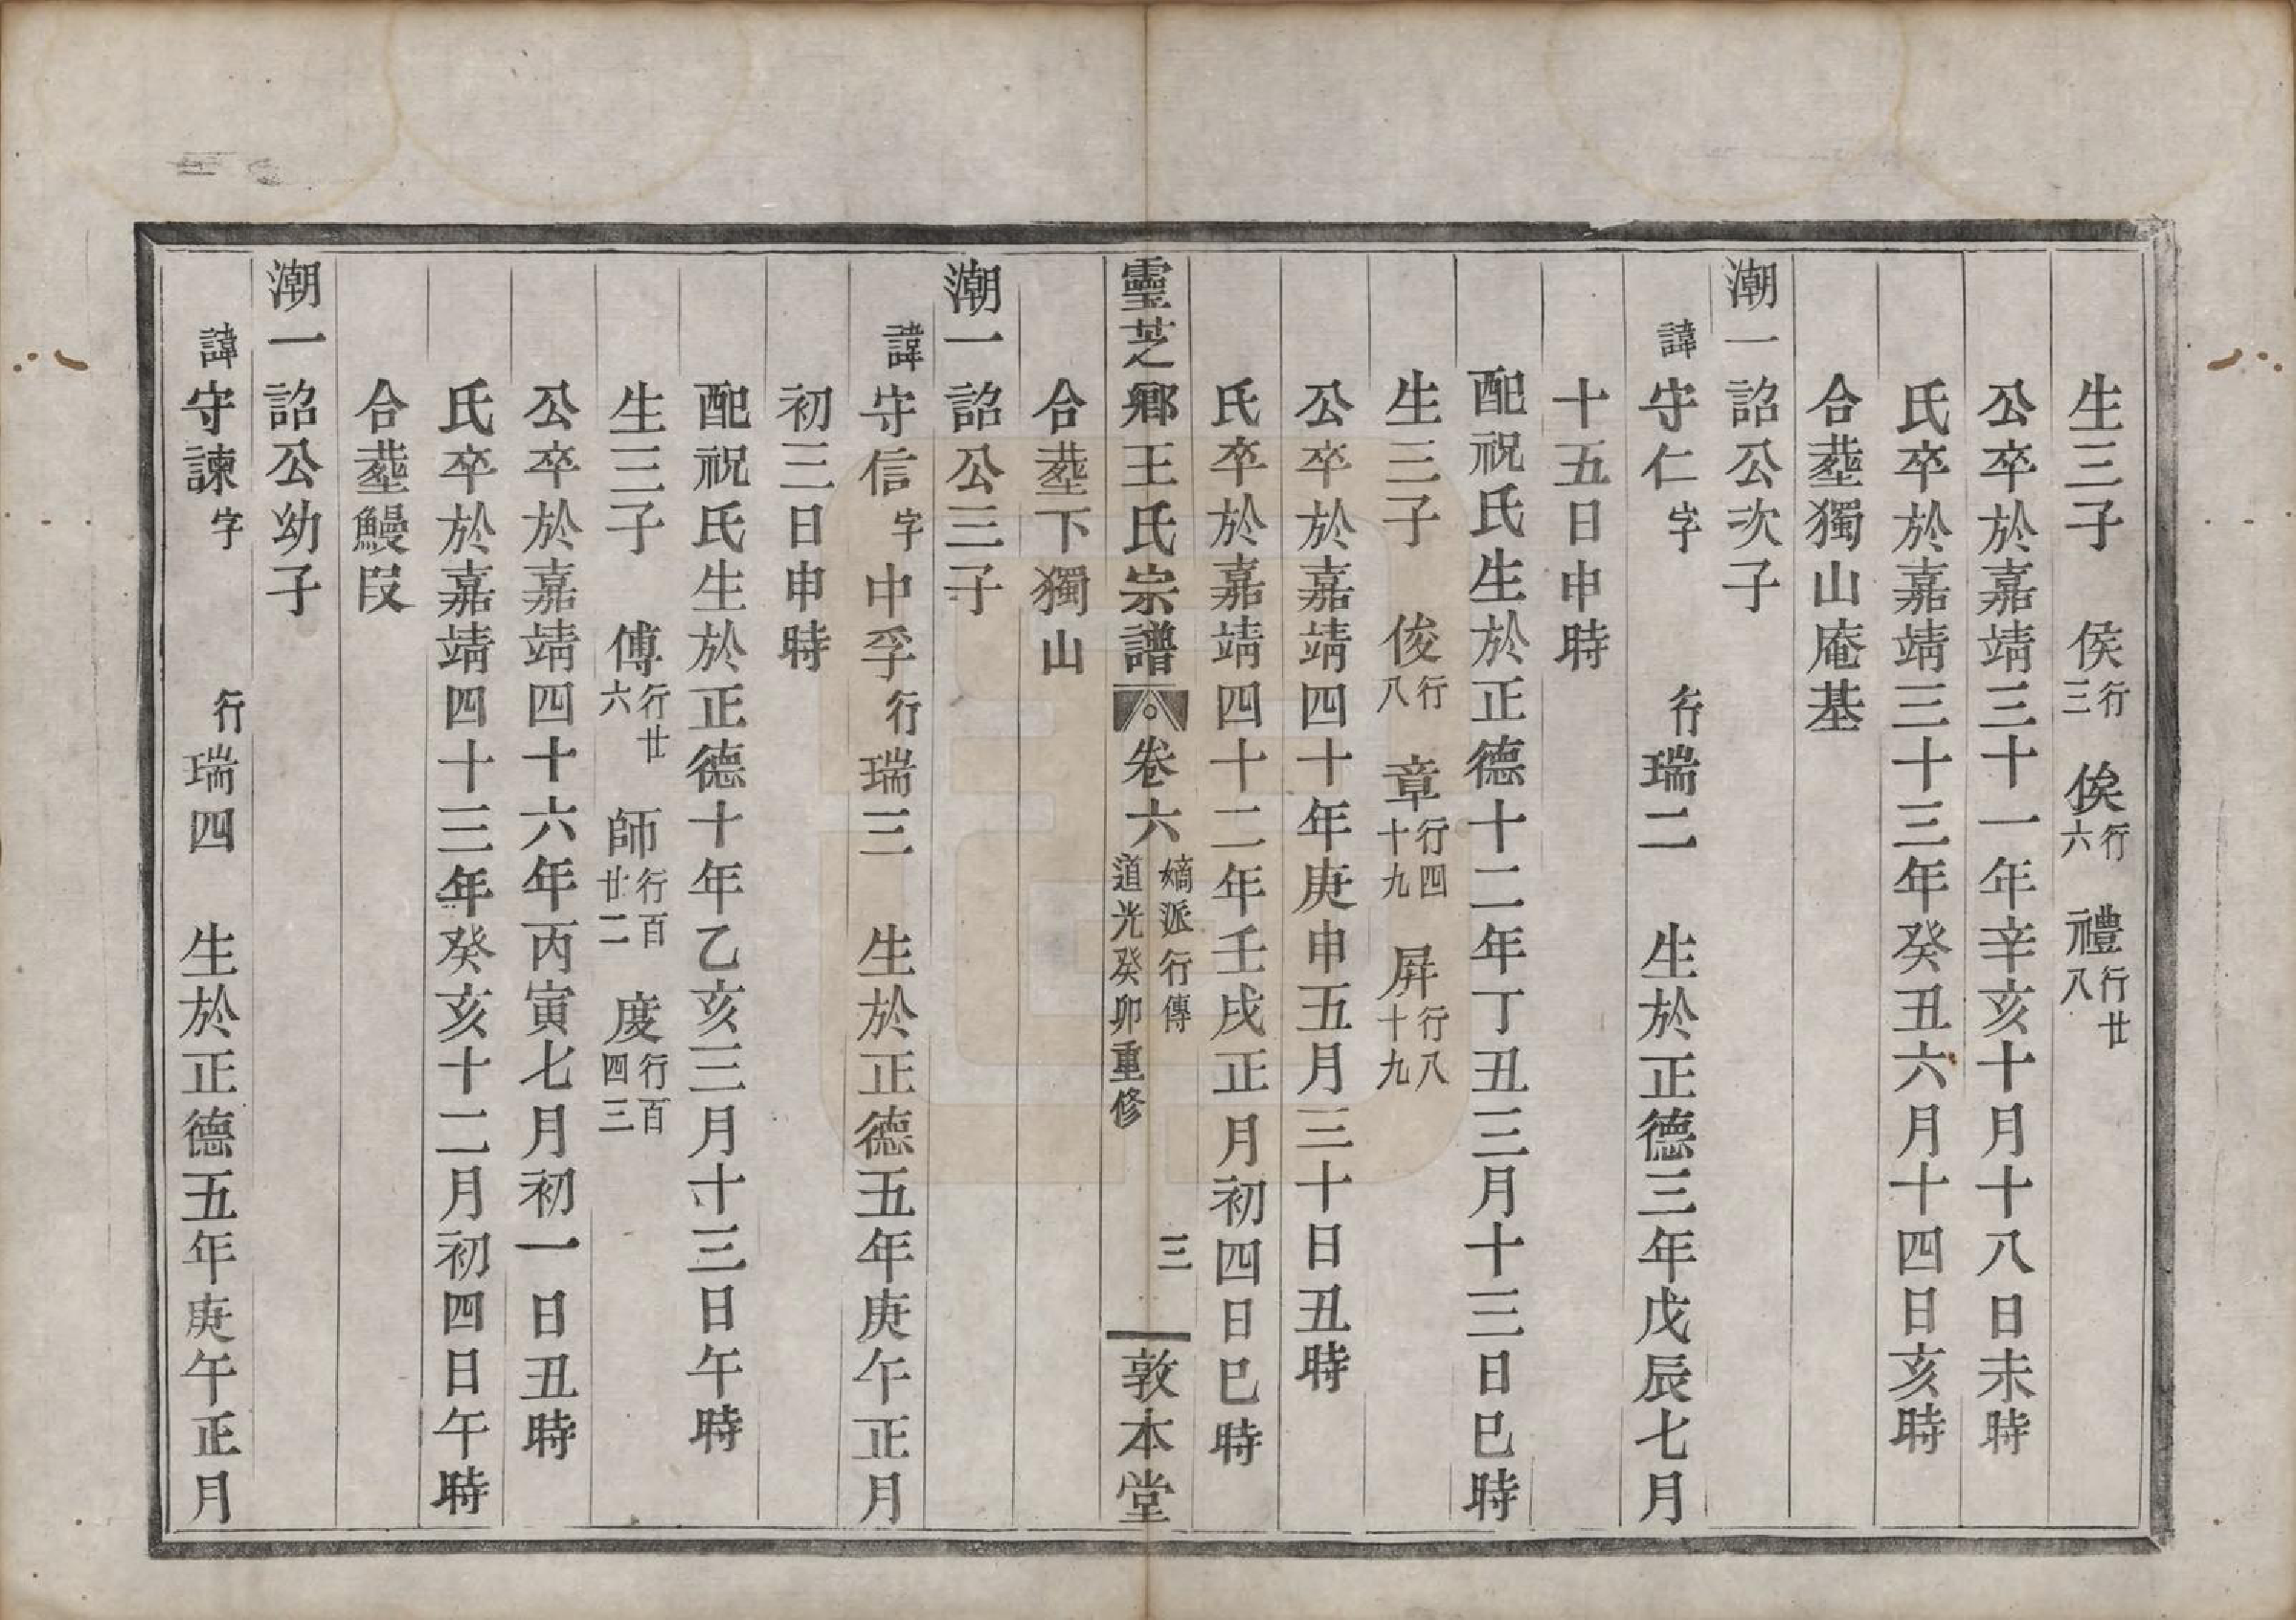 生三子 侯行三 俟行六 禮行廿八
公卒於嘉靖三十一年辛亥十月十八日未時
氏卒於嘉靖三十三年癸丑六月十四日亥時
合塟獨山庵基
潮一詔公次子
諱守仁字 行瑞二 生於正德三年戊辰七月
十五日申時
配祝氏生於正德十二年丁丑三月十三日巳時
生三子 俊行八 章行四十九 屛行八十九
公卒於嘉靖四十年庚申五月三十日丑時
氏卒於嘉靖四十二年壬戌正月初四日巳時
靈芝鄉王氏宗譜 卷六 嫡派行傳 道光癸卯重修 三 敦本堂
合塟下獨山
潮一詔公三子
諱守信字中孚行瑞三 生於正德五年庚午正月
初三日申時
配祝氏生於正德十年乙亥三月十三日午時
生三子 傅行廿六 師行百廿二 度行百四三
公卒於嘉靖四十六年丙寅七月初一日丑時
氏卒於嘉靖四十三年癸亥十二月初四日午時
合塟鰻段
潮一詔公幼子
諱守諫字 行瑞四 生於正德五年庚午正月